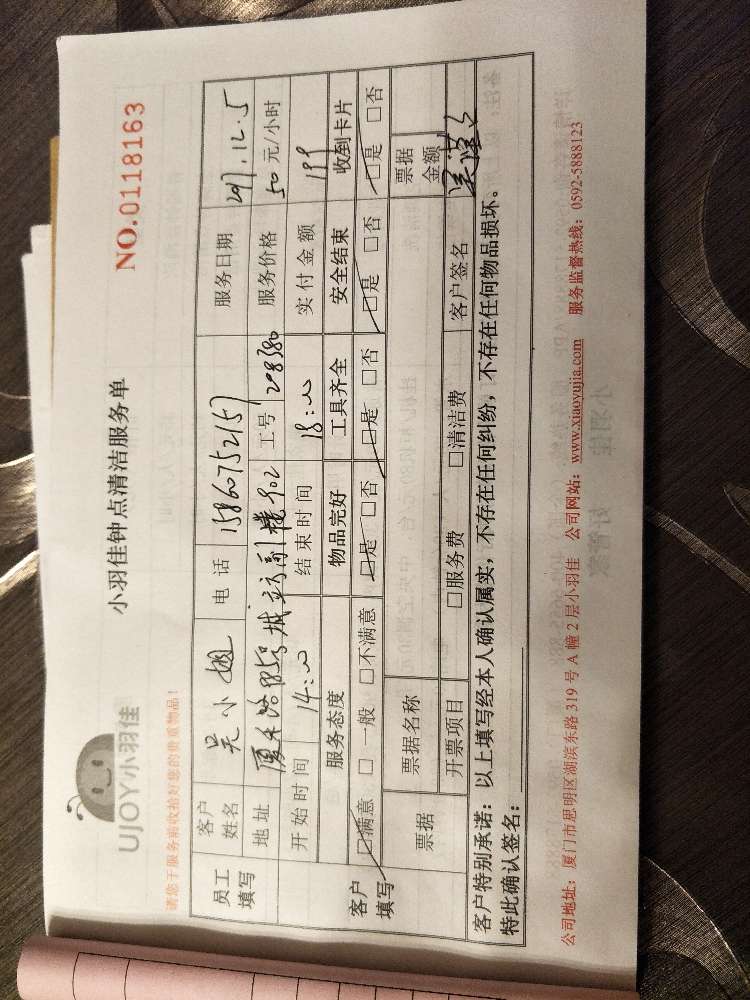 UJOY小羽佳
小羽佳钟点清洁服务单
NO.0118163
请您于服务前收拾好您的贵重物品！
员工填写
客户姓名 吴小姐 电话 15860752157 服务日期
地址 工号 208380 服务价格 50元/小时
开始时间 14:00 结束时间 18:00 实付金额 199
客户填写
服务态度 物品完好 工具齐全 安全结束 收到卡片
□满意 □一般 □不满意 □是 □否 □是 □否 □是 □否 □是 □否
票据 票据名称 票据金额
开票项目 □服务费 □清洁费 客户签名
客户特别承诺：以上填写经本人确认属实，不存在任何纠纷，不存在任何物品损坏。
特此确认签名：
公司地址：厦门市思明区湖滨东路 319 号 A 幢 2 层小羽佳 公司网站：www.xiaoyujia.com 服务监督热线：0592-5888123